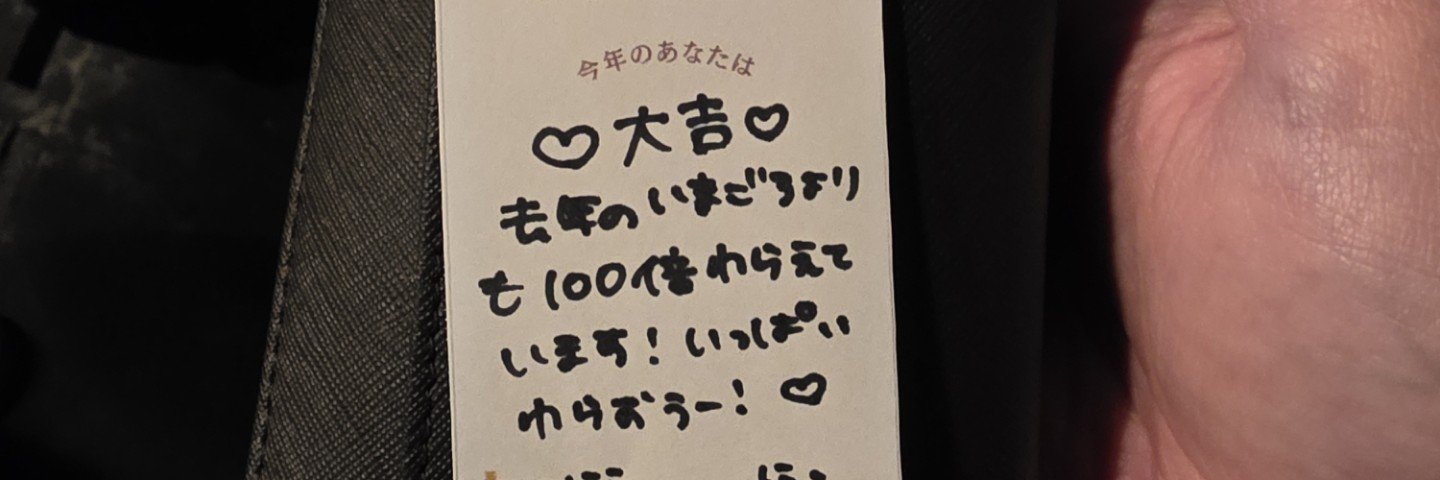 今年のあなたは
♡大吉♡
去年のいまごろより
も100倍わらえて
います！いっぱい
わらおうー！♡